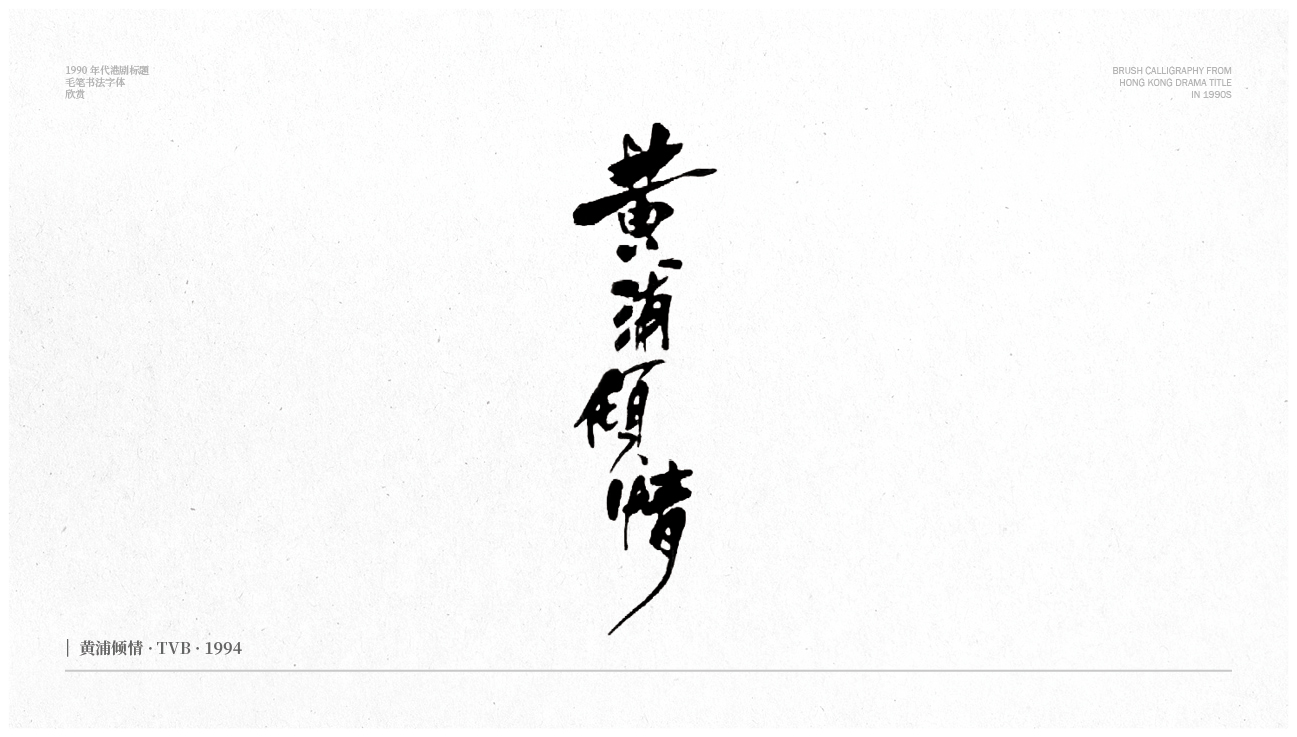 1990 年代港剧标题
毛笔书法字体
欣赏
BRUSH CALLIGRAPHY FROM
HONG KONG DRAMA TITLE
IN 1990S
黄浦傾情
黄浦倾情 · TVB · 1994